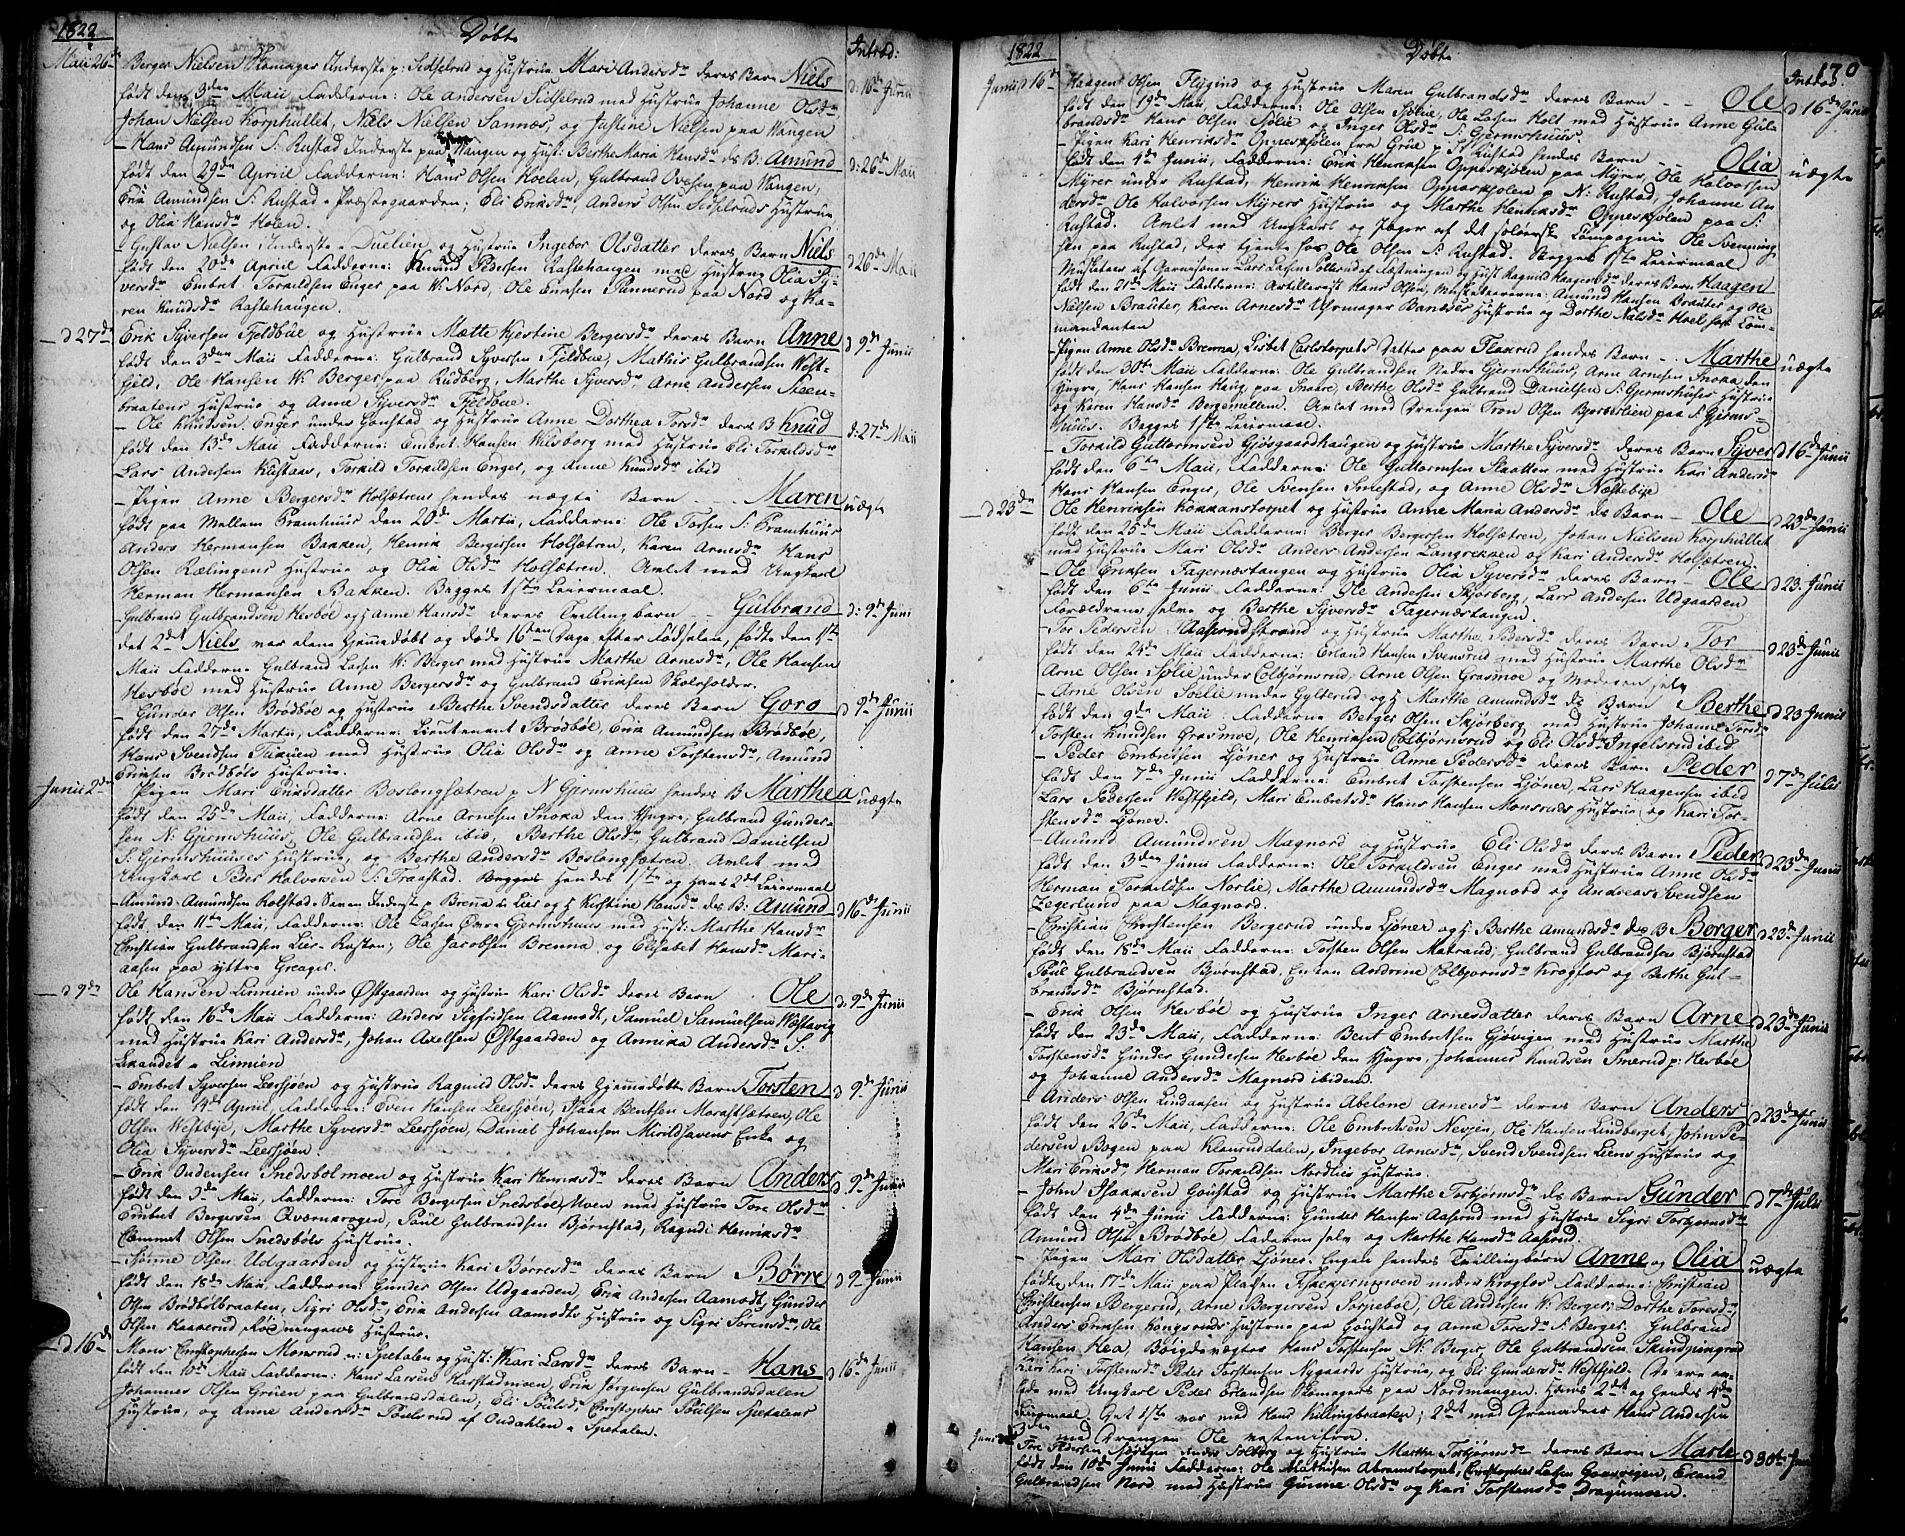 1822
Døbte
Introd:
Maii 26de
Berger Nielsen Skomager Inderste p: Sidselrud og Hustrue Mari Andersdr deres Barn Niels
d: 16de Junii
født den 3den Maii Fadderne: Ole Andersen Sidselrud med Hustrue Johanne Olsdr
Johan Nielsen Korphullet, Niels Nielsen Sannæs, og Justine Nielsen paa Vangen
- Hans Amundsen S: Rustad Inderste paa Vangen og Hust: Berthe Maria Hansdr ds B: Amund
d: 26de Maii
født den 29de April Fadderne: Hans Olsen Hoelen, Gulbrand Ovesen paa Vangen,
Erik Amundsen S: Rustad, Præstegaarden; Eli Eriksdr, Anders Olsen Sidselruds Hustrue
og Olia Hansdr Holen.
- Gustav Nielsen Inderste Duelien og Hustrue Ingebor Olsdatter deres Barn Niels
d 26de Maii
født den 20de April Fadderne: Knud Pedersen Rastehaugen med Hustrue Olia Sy-
versdr Embret Torkildsen Enger paa N: Nord, Ole Eriksen Pannerud paa Nord og Ka-
ren Knudsdr Rastehaugen.
d 27de
Erik Syversen Fjeldbøe og Hustrue Mætte Kjestine Bergersdr deres Barn Anne
d 9de Junii
født den 3den Maii Fadderne: Gulbrand Syversen Fjeldbøe, Mathis Gulbrandsen Vest-
fjeld, Ole Hansen N: Berger paa Rudberg, Marthe Syversdr, Arne Andersen Steen-
braatens Hustrue og Anne Syversdr Fjeldbøe.
- Ole Knudsen Enger under Goustad og Hustrue Anne Dorthea Torsdr deres B Knud
d: 27de Maii
født den 13de Maii Fadderne: Embret Hansen Melsborg med Hustrue Eli Torkildsdr
Lars Andersen Kusaas, Torkild Torkildsen Enger, og Anne Knudsdr ibid
- Pigen Anne Bergersdr Holsætren hendes uægte Barn - - Maren
uægte
født paa Mellem Gramhuus den 20de Martii, Fadderne: Ole Torsen S: Gramhuus
Anders Hermansen Bakken, Henrik Bergersen Holsætren, Karen Arnesdr Hans
Olsen Rælingens Hustrue og Olia Olsdr Holsætren. Avlet med Ungkarl
Herman Hermansen Bakken. Begges 1ste Leiermaal.
Gulbrand Gulbrandsen Hersbøe og Anne Hansdr deres Tvillingbørn - Gulbrand
d: 9de Junii
det 2det Niels var alene hjemmedøbt og døde 16ten Dage efter Fødselen, født den 1ste
Maii Fadderne Gulbrand Larsen N: Berger med Hustrue Marthe Arnesdr, Ole Hansen
Hersbøe med Hustrue Anne Bergersdr og Gulbrand Eriksen Skoleholder.
- Gunder Olsen Brødbøe og Hustrue Berthe Svendsdatter deres Barn Goro
d 9de Junii
født den 27de Martii, Fadderne: Lieutenant Brødbøe, Erik Amundsen Brødbøe,
Hans Svendsen med Hustrue Olia Olsdr og Anne Torstensdr, Amund
Eriksen Brødbøls Hustrue.
Junii 2de
- Pigen Mari Eriksdatter Boslongsætren p N Gjermshuus hendes B Marthe
uægte
født den 25de Maii Fadderne: Arne Arnesen Snoka den Yngre, Gulbrand Gunder-
sen N: Gjermshuus, Ole Gulbrandsen ibid, Berthe Olsdr, Gulbrand Danielsen
S: Gjermshuuses Hustrue, og Berthe Andersdr Boslongsætren. Avlet med
Ungkarl Peder Halvorsen S: Traastad. Begges Hendes 1ste og Hans 2det Leiermaal
Amund Amundsen Holstad Inderst p Brena u: Lier og H: Kirstine Hansdr ds B: Amund
d 16de Junii
født den 11te Maii, Fadderne: Ole Larsen Øvre Gjermshuus med Hust: Marthe Hansdr
Christian Gulbrandsen Lier-Rasten; Ole Jacobsen Brenna, og Elisabet Hansdr Mari-
aasen paa yttre Greager.
d 9de
Ole Hansen Linnien under Østgaarden og Hustrue Kari Olsdr deres Barn Ole
d: 9de Junii
født den 16de Maii Fadderne: Anders Sigfridsen Aamodt, Samuel Samuelsen Væstevig
med Hustrue Kari Andersdr, Johan Axelsen Østgaarden og Annika Andersdr S:
Skandet u Linnien
- Embret Syversen Leersjøen og Hustrue Ragnild Olsdr deres hjemmedøbte Barn Torsten
d 9de Junii
født den 14de April, Fadderne: Even Hansen Leersjøen, Isaac Bentsen Morastsætren, Ole
Olsen Vestbye, Marthe Syversdr Leersjøen, Daniel Johansen Mirildshavens Enke og
Olia Syversdr Leersjøen.
- Erik Oudensen Snedsbolmoen og Hustrue Kari Henriksdr deres Barn Anders
d 9de Junii
født den Maii, Fadderne: Tor Bergersen Snedsbølmoen med Hustrue Tore Olsdr
Embret Bergersen Qværnkrogen, Poul Gulbrandsen Bjørnstad, Ragndi Henriksdr
Clemmet Olsen Snedsbøls Hustrue.
- Simme Olsen Udgaarden og Hustrue Kari Børresdr deres Barn Børre
d 9de Junii
født den 18de Maii Fadderne: Gunder Olsen Udgaarden, Erik Andersen Aamodt, Gunder
Olsen Brødbølbraaten, Sigri Olsdr, Erik Andersen Aamodts Hustrue og Sigri Sørensdr, Ole
Olsen Kaalerud Rødningens Hustrue.
d 16de
Mons Christophersen Monsrud u: Spetalen og Hust: Kari Larsdr deres Barn - Hans
d 16de Junii
født den 10de Maii Fadderne: Hans Larsen Harstedmoen, Erik Jørgensen Gulbrandsdalen
Johannes Olsen Gruen paa Gulbrandsdalen, Eli Poulsdr, Christopher Poulsen Spetalens
Hustrue, og Anne Andersdr Poulerud af Oudahlen u Spetalen.
1822
Døbte
170
Introd
Junii d 16de
Haagen Olsen Flygind og Hustrue Maren Gulbrandsdr deres Barn - - Ole
d 16de Junii
født den 19de Mai, Fadderne: Ole Olsen Sølie, Ole Larsen Holt med Hustrue Anne Gul-
brandsdr Hans Olsen Sølie og Inger Olsdr S: Gjermshuus.
- Pigen Kari Henriksdr Oppeskjølen fra Grue p S: Rustad hendes Barn - - Olia
uægte
født den 4de Junii, Fadderne: Erik Henriksen Oppeskjølen paa Myrer, Ole Halvorsen
Myrer under Rustad, Henrik Henriksen Oppeskjølen p N: Rustad, Johanne An-
dersdr Ole Halvorsen Myrers Hustrue og Marthe Henriksdr Oppeskjølen paa S:
Rustad. Avlet med Ungkarl og Jæger af det Soløerske Compagnie Ole Svenning-
sen paa Rustad, der tjente hos Ole Olsen S: Rustad. Begges 1ste Leiermaal
Musketeer af Garnisonen Lars Larsen Pollerud Fæstningen og Hust: Ragnild Haagensdr deres Barn Haagen
født den 21de Maii Fadderne: Artillerist Hans Olsen, Musketererne: Amund Hansen Brauter og Ole
Nielsen Brauter, Karen Arnesdr Uhrmager Bandses Hustrue og Dorthe Nielsdr Hoel hos Com-
mandanten
- Pigen Anne Olsdr Brenna, Lisbet Carlstorpets Datter paa Flaxrud hendes Barn - - Marthe
uægte
født den 30te Maii Fadderne: Ole Gulbrandsen Nedre Gjermshuus, Arne Arnesen Snoka den
Yngre, Hans Hansen Haug paa Snokre, Berthe Olsdr Gulbrand Danielsen S: Gjermshuses Hustrue
og Karen Hansdr Bergemellem. Avlet med Drengen Tron Olsen Bjerberlien paa S: Gjerms-
huus. Begges 1ste Leiermaal.
- Torkild Guttormsen Gjøsgaardhaugen og Hustrue Marthe Syversdr deres Barn Syver
d 16de Junii
født den 6te Maii, Fadderne: Ole Guttormsen Slaatten med Hustrue Kari Andersdr
Hans Hansen Enger, Ole Svensen Smestad, og Anne Olsdr Næstebye
d 23de
Ole Henriksen Kokkanstorpet og Hustrue Anne Maria Andersdr ds Barn - Ole
d 23de Junii
født den 25de Maii Fadderne: Berger Bergersen Holsætren, Johan Nielsen Korphullet
med Hustrue Mari Olsdr Anders Andersen Langrækken og Kari Andersdr Holsætren.
- Ole Eriksen Fagernestangen og Hustrue Olia Syversdr deres Barn - Ole
d 23. Junii
født den 6te Junii Fadderne: Ole Andersen Skjørberg, Lars Andersen Udgaarden
Forældrene selve og Berthe Syversdr Fagernæstangen.
- Tor Pedersen Aaserudstrand og Hustrue Marthe Ibersdr deres Barn Tor
d 23de Junii
født den 24de Maii Fadderne: Erland Hansen Svensrud med Hustrue Marthe Olsdr
Arne Olsen Sølie under Colbjørnsrud, Arne Olsen Grasmoe og Moderen selv
- Arne Olsen Soelie under Gylterud og H: Marthe Amundsdr ds Barn Berthe
d 23 Junii
født den 9de Maii Fadderne Berger Olsen Skjørberg med Hustrue Johanne Torsdr
Torsten Knudsen Grasmoe, Ole Henriksen Colbjørnsrud og Eli Olsdr Ingelsrud ibid
- Peder Embretsen Sjøner og Hustrue Anne Pedersdr deres Barn Peder
d 7de Julii
født den 7de Junii Fadderne: Embret Torstensen Sjøner, Lars Haagensen ibid
Lars Pedersen Vestfjeld, Mari Embretsdr Hans Hansen Monsruds Hustrue og Kari Tor-
stensdr Sjøner.
- Amund Amundsen Magnord og Hustrue Eli Olsdr deres Barn Peder
d 23de Junii
født den 3den Junii Fadderne: Ole Torkildsen Enger med Hustrue Anne Olsdr
Herman Torkildsen Norlie, Marthe Amundsdr Magnord og Andreas Svendsen
Segerlund paa Magnord.
- Christian Christensen Bergerud under Sjøner og H: Berthe Amundsdr ds B Berger
d 23de Junii
født den 18de Maii Fadderne: Torsten Olsen Matrand, Gulbrand Gulbrandsen Bjørnstad
Poul Gulbrandsen Bjørnstad, Enken Andrine Colbjørnsdr Krogfos og Berthe Gul-
brandsdr Bjørnstad.
- Erik Olsen Hersbøe og Hustrue Inger Arnesdatter deres Barn Arne
d 23de Junii
født den 23de Maii, Fadderne: Bent Embretsen Gjøvigen med Hustrue Marthe
Torstensdr Gunder Gundersen Hersbøe den Yngre, Johannes Knudsen Smerud p: Hersbøe
og Johanne Andersdr Magnord ibidem.
- Anders Olsen Lindaasen og Hustrue Abelone Arnesdr deres Barn Anders
d 23de Junii
født den 26de Maii, Fadderne: Ole Embretsen Nevjen, Ole Hansen Lindberget, John Pe-
dersen Bogen paa Klanrudalen, Ingebor Arnesdr, Svend Svendsen Liens Hustrue og
Mari Eriksdr Herman Torkildsen Nordlies Hustrue.
- John Isaaksen Goustad og Hustrue Marthe Torbjørnsdr ds Barn Gunder
d 7de Julii
født den 4de Junii Fadderne: Gunder Hansen Aaserud med Hustrue Sigri Torbjørnsdr
Amund Olsen Brødbøe, Faderen selv og Marthe Hansdr Aaserud.
- Pigen Mari Olsdatter Sjøner-Engen hendes Tvillingbørn Anne og Olia
uægte
født den 17de Maii paa Pladsen under Krogfos Fadderne: Christian
Christensen Bergerud, Arne Bergersen Torpebøe, Ole Andersen N: Berger; Dorthe Toresdr,
Anders Eriksen Kongsruds Hustrue paa Goustad og Anne Toresdr S: Berger. Gulbrand
Hansen Hea, Bøigdevægter Hans Torstensen N: Berger, Ole Gulbrandsen Skindpungrud
Kari Torstensdr Peder Torstensen Nygaards Hustrue, og Eli Gundersdr Vestfjeld. De ere av-
lede med Ungkarl Peder Erlandsen Skomagers paa Nordmangen. Hans 2det og hendes 4de
Leiermaal. Det 1ste var med Hans Killingbraaten; 2det med Grenadeer Hans Andersen
3die med Drengen Ole
Junii 30
Tore Pedersen under Solberg og Hustrue Marthe Torbjørnsdr deres Barn Marte
d 30te Junii
født den 10de Junii Fadderne: Ole Mathisen Abramstorpet, Christopher Larsen Gaarvigen, Erland
Gulbrandsen Nord med Hustrue Gunne Olsdr og Kari Torstensdr Dragemoen.